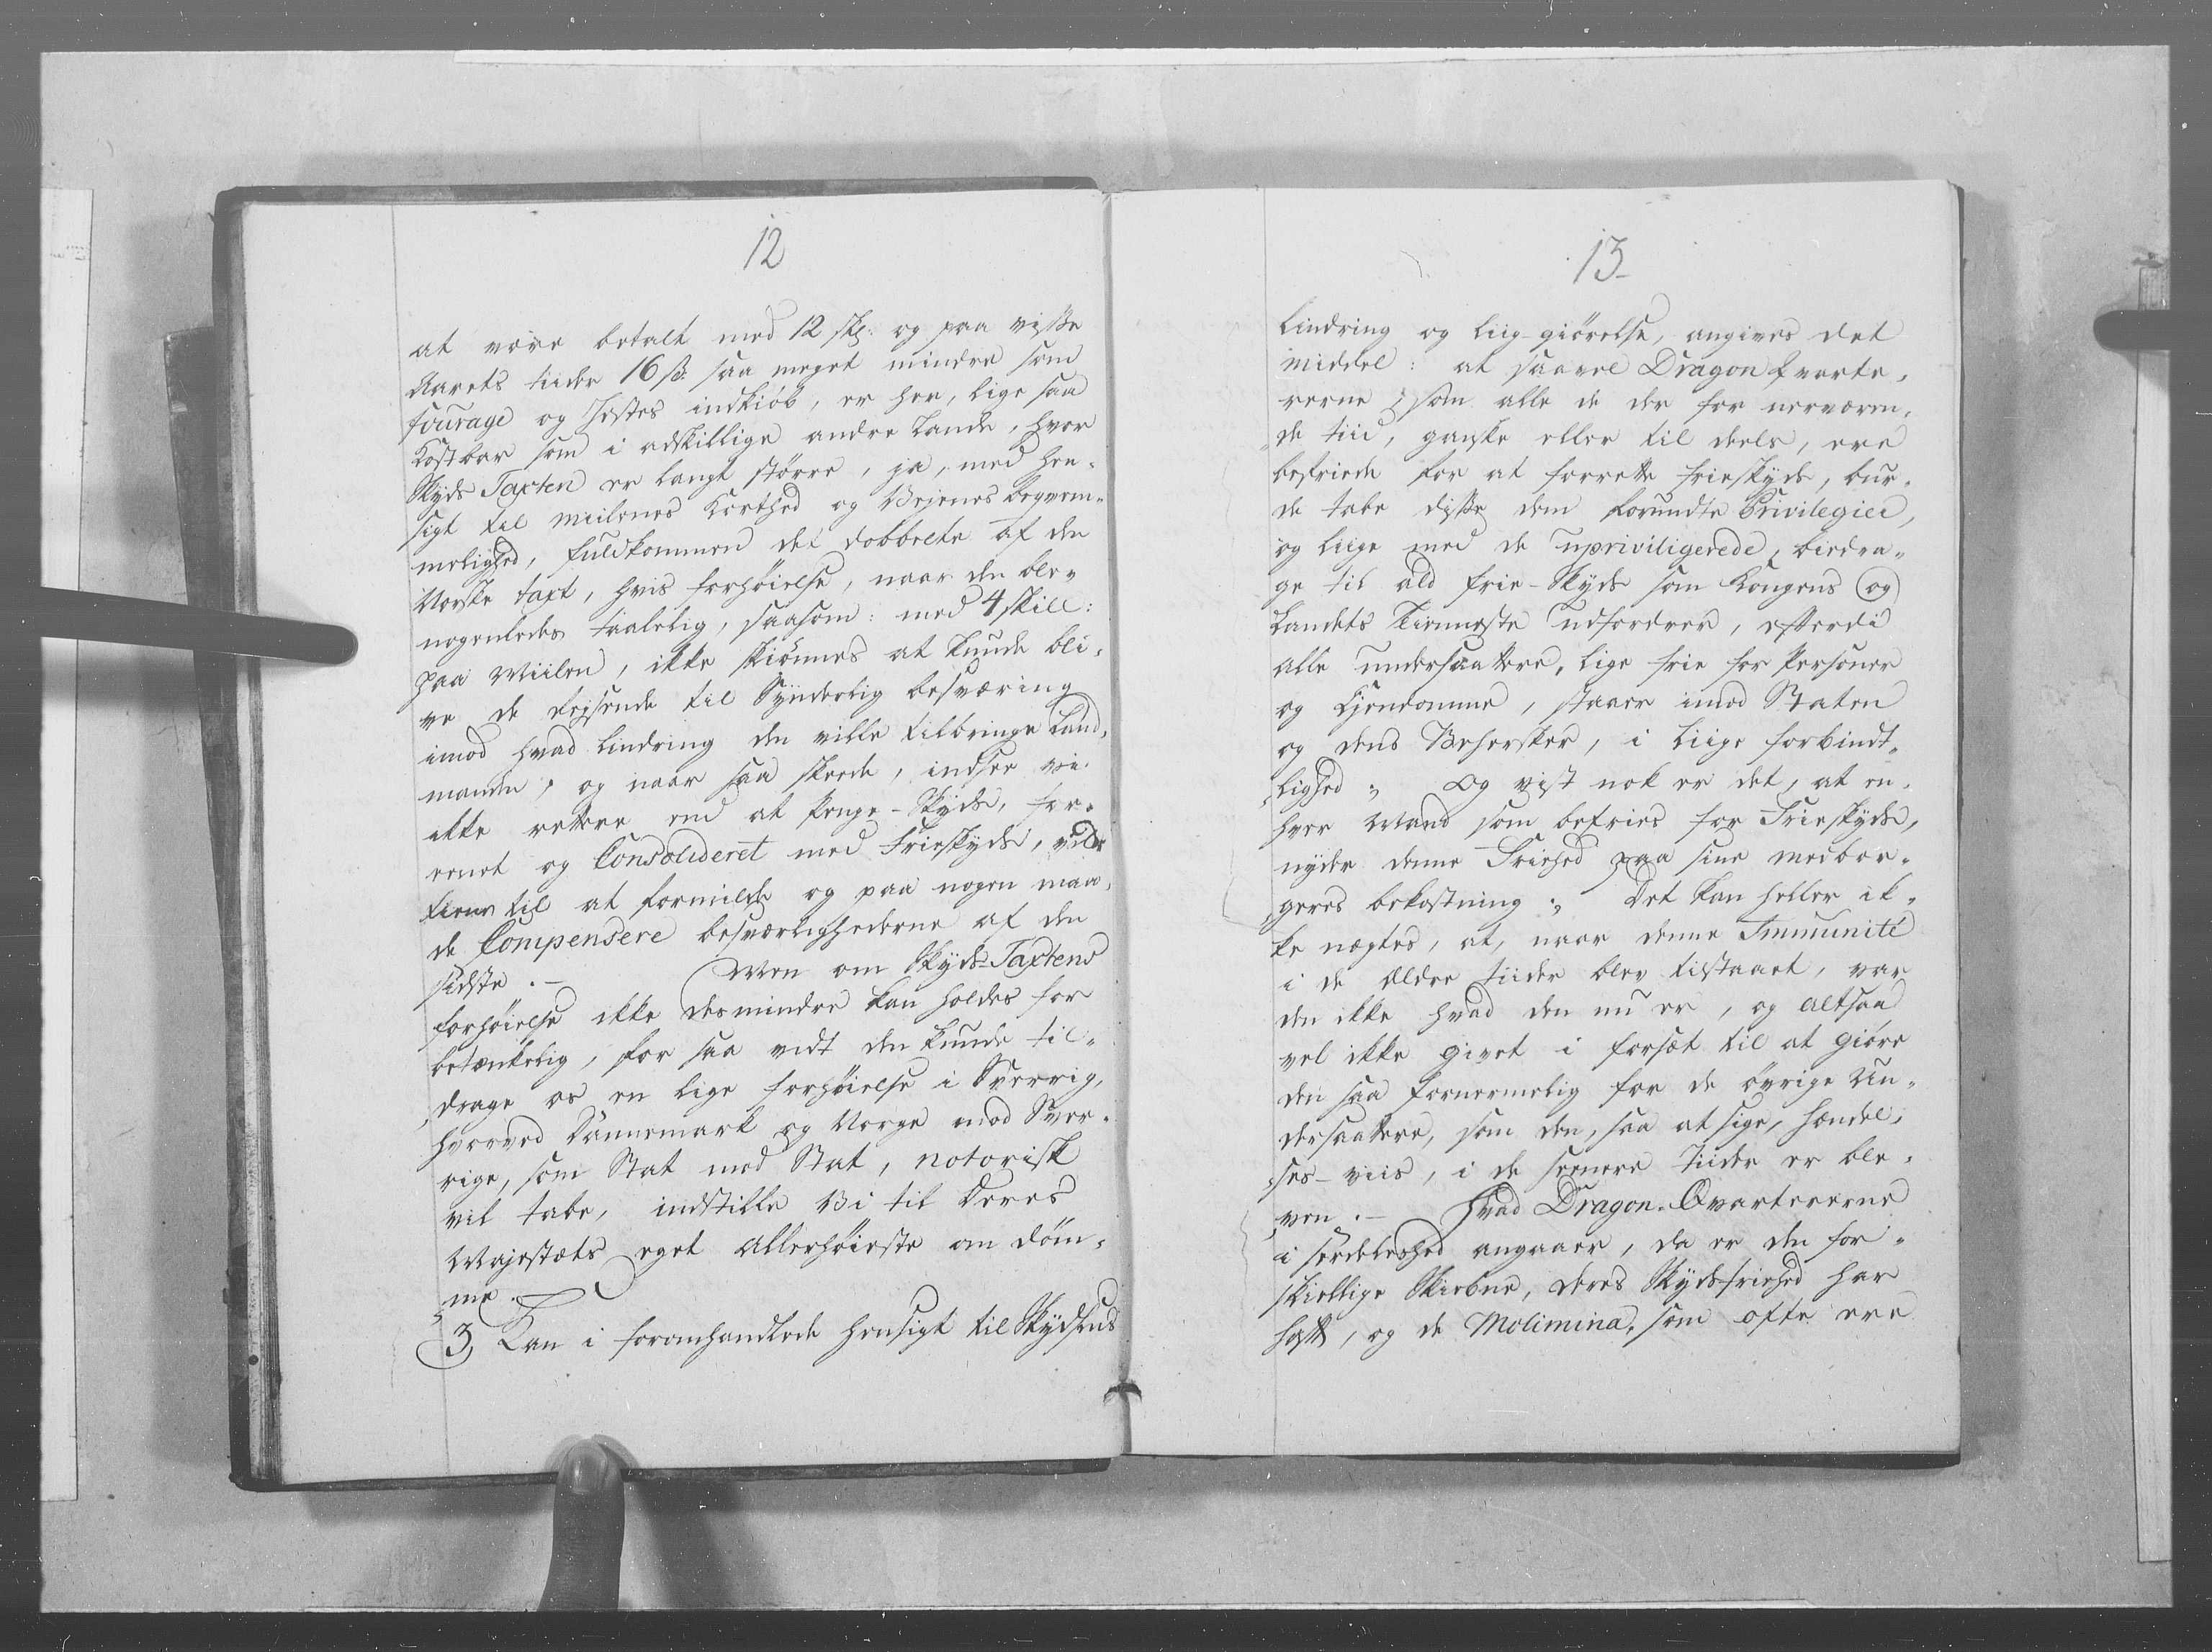 12
at være betalt med 12 skl: og paa visse
Aarets tiider 16 ß. saa meget mindre som
fourage og Hestes indkiöb, er her, lige saa
Kostbar som i adskillige andre Lande, hvor
Skyds Taxten er langt större, ja, med hen-
sigt til miilenes Korthed og Vejenes beqvem-
melighed, fuldkommen det dobbelte af den
Norske taxt, hvis forhöielse, naar den blev
nogenledes taalelig, saasom: med 4 skill:
paa Miilen, ikke skiönnes at kunde bli-
ve de Rejsende til Synderlig besværing
imod hvad Lindring den ville tilbringe Land-
manden, og naar saa skeede, indsee vi
ikke rettere end at penge-Skyds, for-
eenet og Consolideret med Frieskyds, vilde
tiene til at formilde og paa nogen maa-
de Compensere besværlighederne af den
sidste.- Men om Skyds-Taxtens
forhöielse ikke desmindre kan holdes for
betænkelig, for saa vidt den kunde til-
drage os en lige forhöielse i Sverrig,
hvorved Dannemark og Norge mod Sver-
rige, som Stat mod Stat, notorisk
vil tabe, indstille Vi til Deres
Majestæts eget Allerhöieste om döm-
me.
3, Kan i foromhandlede hensigt til Skydsens
13
Lindring og Liig-giörelse, angives det
middel: at saavel Dragon Qvarte-
rerne, som alle de der for nerværen-
de tiid, ganske eller til deels, ere
befriede for at forrette frieskyds, bur-
de tabe disse dem forundte Privilegier,
og liige med de upriviligerede, biedra-
ge til ald frie-Skyds som Kongens og
Landets Tienneste udfordrer, efterdi
alle undersaatere, lige frie for Personer
og Ejendomme, staaer imod Staten
og dens Behersker, i Liige forbindt-
lighed; Og vist nok er det, at en-
hver Mand som befries for Frieskyds,
nyder denne Friehed paa sine medbor-
geres bekostning; Det kan heller ik-
ke nægtes, at, naar denne Immunité
i de Eldre tiider blev tilstaaet, var
den ikke hvad den nu er, og altsaa
vel ikke givet i forsæt til at giöre
den saa fornermelig for de övrige Un-
dersaattere, som den, saa at sige, hændel-
ses-viis, i de seenere Tiider er ble-
ven.- Hvad Dragon-Qvartererne
i serdeleshed angaaer, da er den for-
skiellige Skiebne, deres Skydsfriehed har
hafft, og de Molimina, som ofte ere